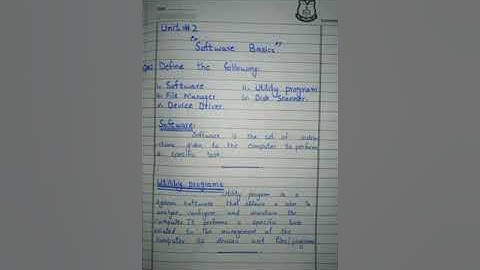 Unit #2
"Software Basics"
Define the following:
i. Software ii. Utility program
File Manager Disk Scanner
v. Device Driver
Software:
Software is the set of instru
ctions given to the computer to perform
a specific task.
Utility program:
Utility program is a
system software that allows a user to
analyze, configure and maintain the
computer. It performs a specific task
related to the management of the
computer its devices and files/programs